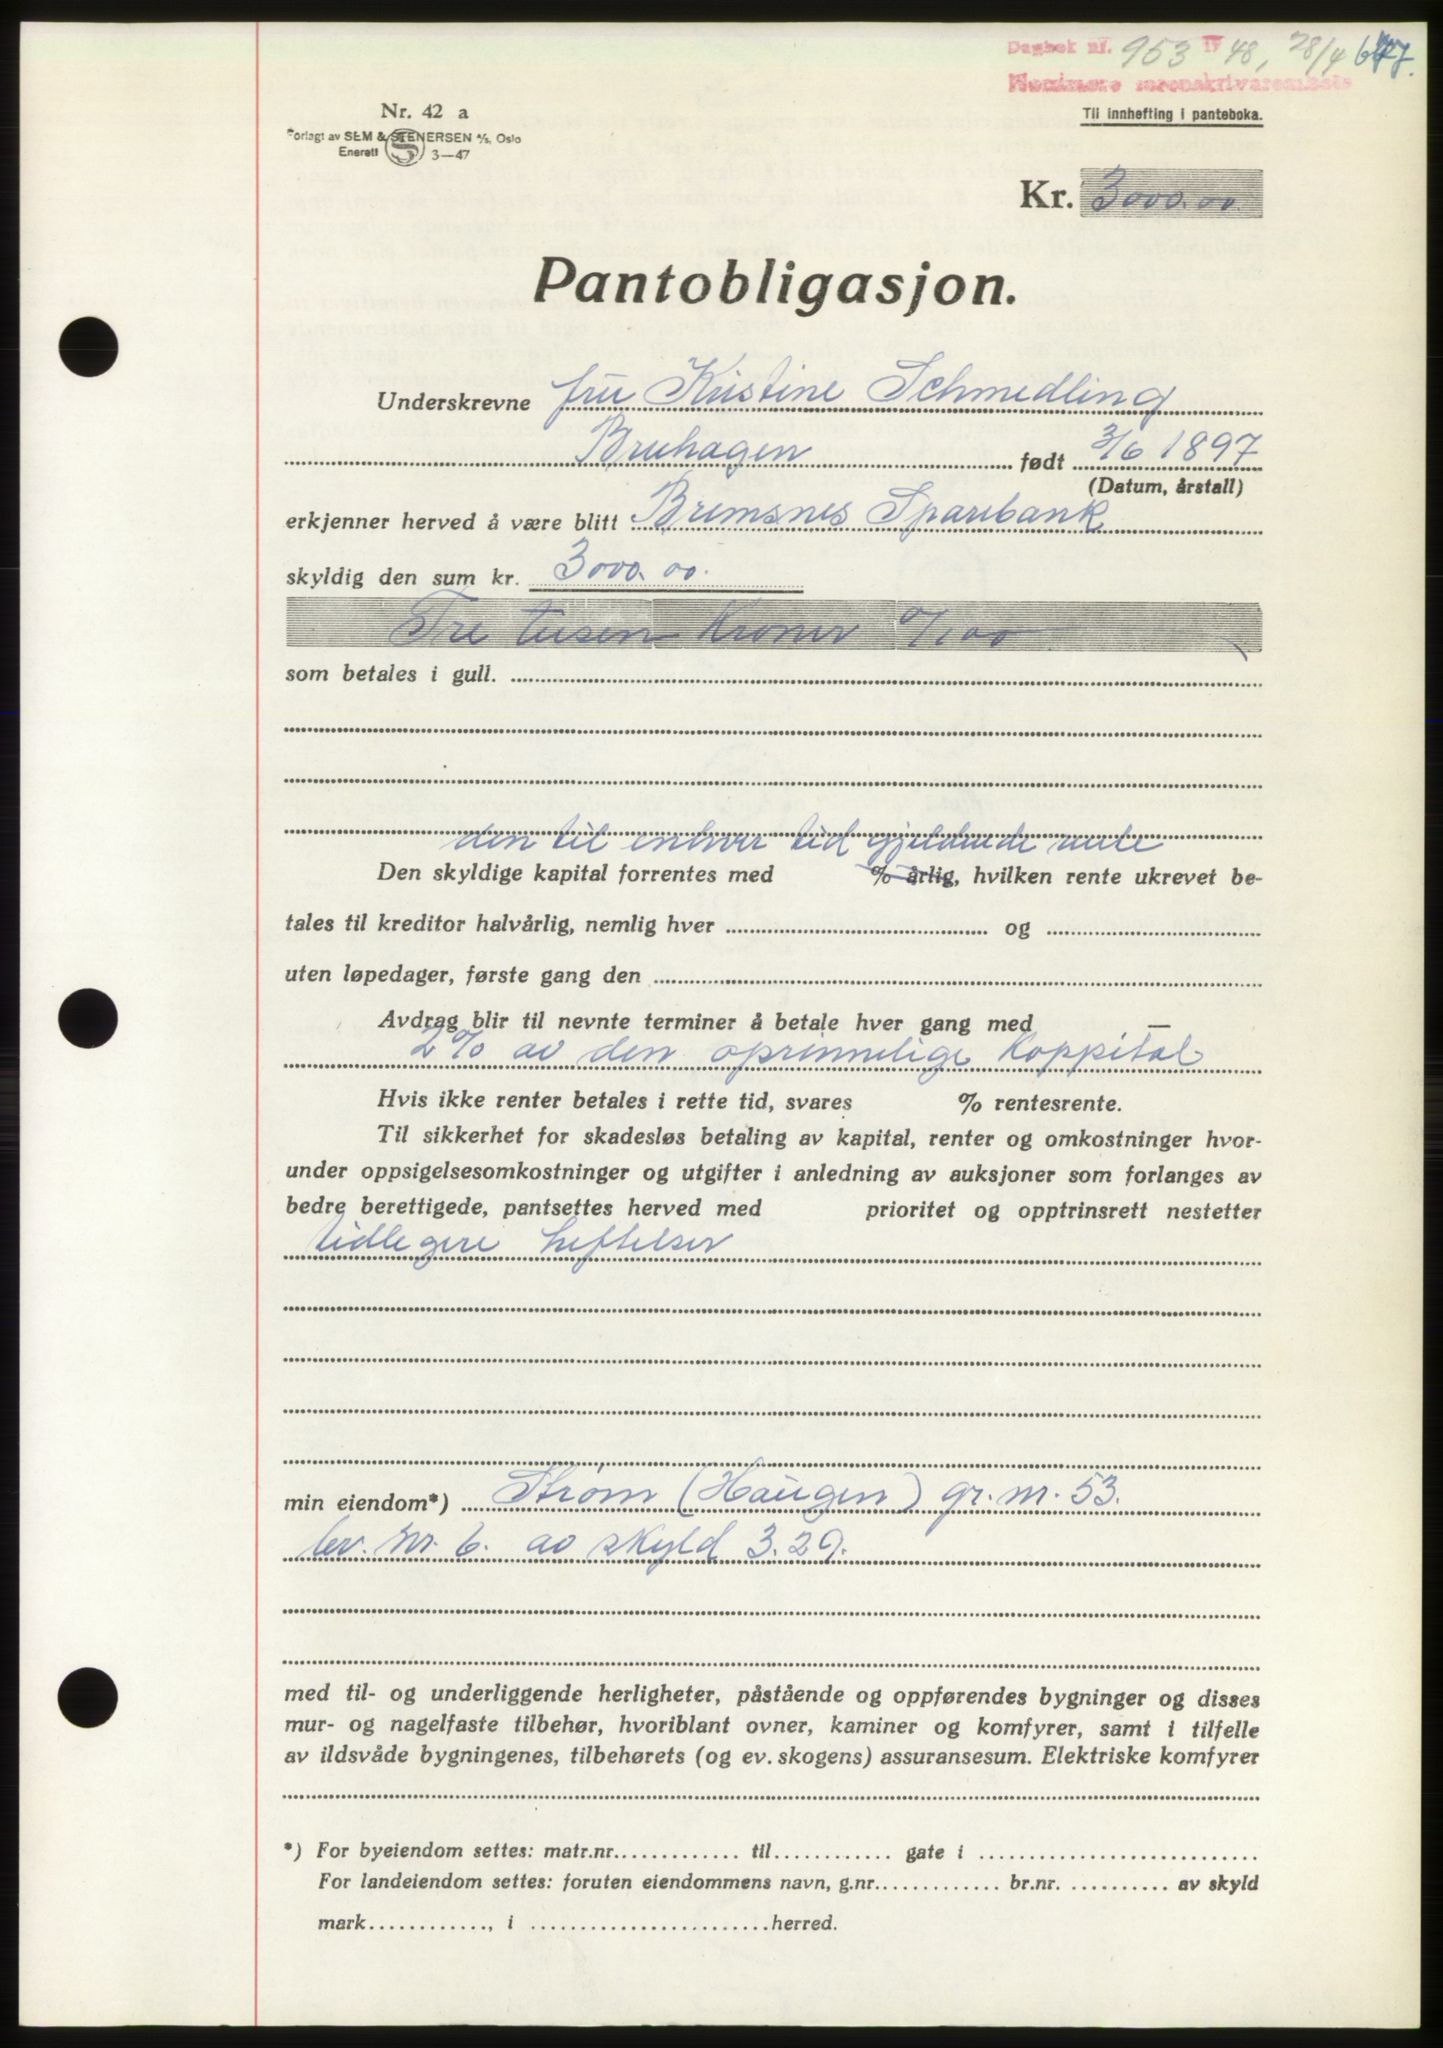 Dagbok nr. 953 IV 48, 28/4 647.
Nordmøre sorenskriverembete
Nr. 42 a
Forlagt av SEM & STENERSEN A/S, Oslo
Enerett S 3—47
Til innhefting i panteboka.
Kr. 3000.00.
Pantobligasjon.
Underskrevne fru Kristine Schmedling
Bruhagen født 3/6 1897
(Datum, årstall)
erkjenner herved å være blitt Bremsnes Sparebank
skyldig den sum kr. 3000.00.
Tre tusen Kroner 0/100
som betales i gull.
den til enhver tid gjeldende rente
Den skyldige kapital forrentes med % årlig, hvilken rente ukrevet be-
tales til kreditor halvårlig, nemlig hver og
uten løpedager, første gang den
Avdrag blir til nevnte terminer å betale hver gang med
2% av den oprinnelige Kappital
Hvis ikke renter betales i rette tid, svares % rentesrente.
Til sikkerhet for skadesløs betaling av kapital, renter og omkostninger hvor-
under oppsigelsesomkostninger og utgifter i anledning av auksjoner som forlanges av
bedre berettigede, pantsettes herved med prioritet og opptrinsrett nestetter
tidlegere heftelser
min eiendom*) Strøm (Haugen) gr. nr. 53.
br. nr. 6. av skyld 3.29.
med til- og underliggende herligheter, påstående og oppførendes bygninger og disses
mur- og nagelfaste tilbehør, hvoriblant ovner, kaminer og komfyrer, samt i tilfelle
av ildsvåde bygningenes, tilbehørets (og ev. skogens) assuransesum. Elektriske komfyrer
*) For byeiendom settes: matr.nr. til gate i
For landeiendom settes: foruten eiendommens navn, g.nr. br.nr. av skyld
mark, i herred.